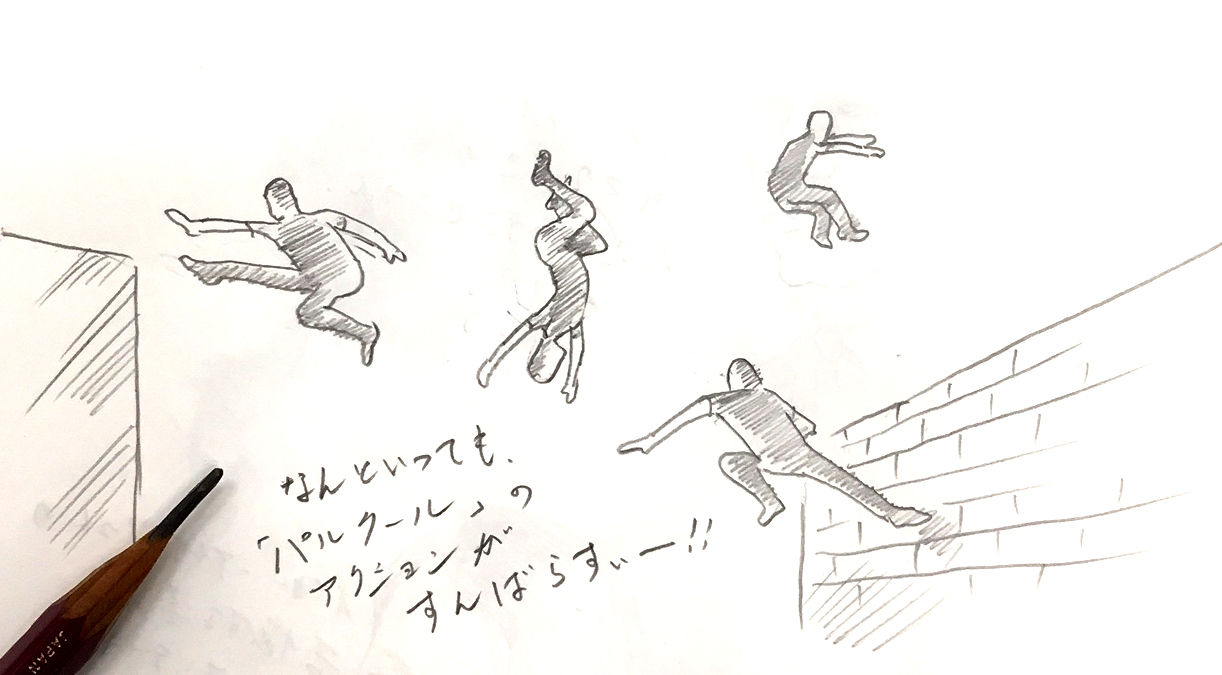 なんといっても、
「パルクール」の
アクションが
すんばらすぃー!!
JAPAN